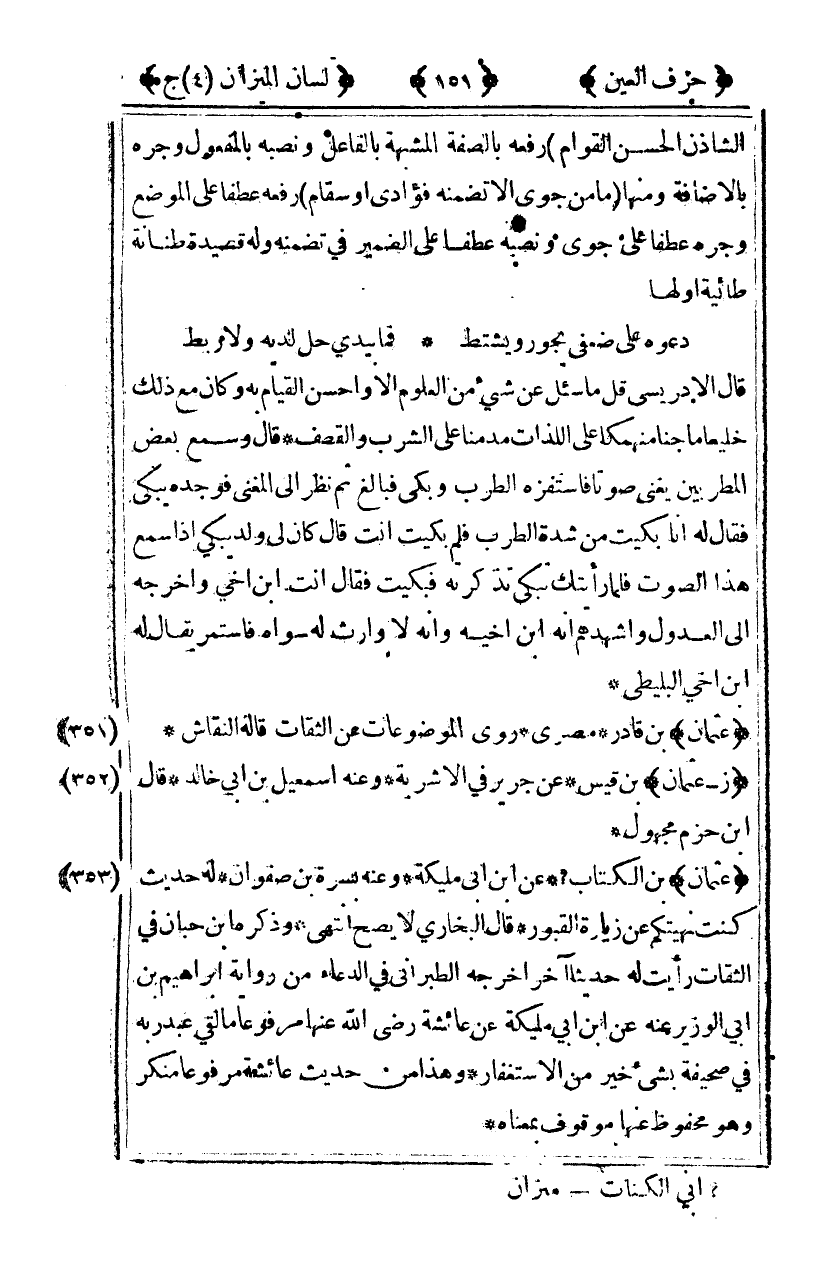 ﴿ حرف العين ﴾ ﴿ ١٥١ ﴾ ﴿ لسان الميزان (٤) ج ﴾
الشاذن الحسن القوام) رفعه بالصفة المشبهة بالفاعل ونصبه بالمفعول وجره
بالاضافة ومنها (ما من جوى الا تضمنه فؤادى او سقام) رفعه عطفا على الموضع
وجره عطفا على جوى ونصبه عطفا على الضمير في تضمنه وله قصيدة طنانة
طائية اولها
دعوه على ضعفى يجور ويشتط * فما بيدي حل لديه ولا ربط
قال الادريسى قل ما سئل عن شيء من العلوم الا واحسن القيام به وكان مع ذلك
خليعا ماجنا منهمكا على اللذات مدمنا على الشرب والقصف * قال وسمع بعض
المطربين يغنى صوتا فاستفزه الطرب وبكى فبالغ ثم نظر الى المغنى فوجده يبكي
فقال له انا بكيت من شدة الطرب فلم بكيت انت قال كان لى ولد يبكي اذا سمع
هذا الصوت فلما رأيتك تبكي تذكرته فبكيت فقال انت ابن اخي واخرجه
الى العدول واشهدهم انه ابن اخيه وانه لا وارث له سواه فاستمر يقال له
ابن اخي البليطى *
﴿ عثمان ﴾ بن قادر * مصرى * روى الموضوعات عن الثقات قاله النقاش * (٣٥١)
﴿ ز - عثمان ﴾ بن قيس * عن جرير في الاشربة * وعنه اسمعيل بن ابي خالد * قال (٣٥٢)
ابن حزم مجهول *
﴿ عثمان ﴾ بن الكتاب ? * عن ابن ابى مليكة * وعنه بسرة بن صفوان * له حديث (٣٥٣)
كنت نهيتكم عن زيارة القبور * قال البخاري لا يصح انتهى * وذكره ابن حبان في
الثقات رأيت له حديثا آخر اخرجه الطبرانى في الدعاء من رواية ابراهيم بن
ابي الوزير عنه عن ابن ابي مليكة عن عائشة رضى الله عنها مرفوعا ما التي عبد ربه
في صحيفة بشىء خير من الاستغفار * وهذا من حديث عائشة مرفوعا منكر
وهو محفوظ عنها موقوف بمعناه *
? ابي الكنات — ميزان